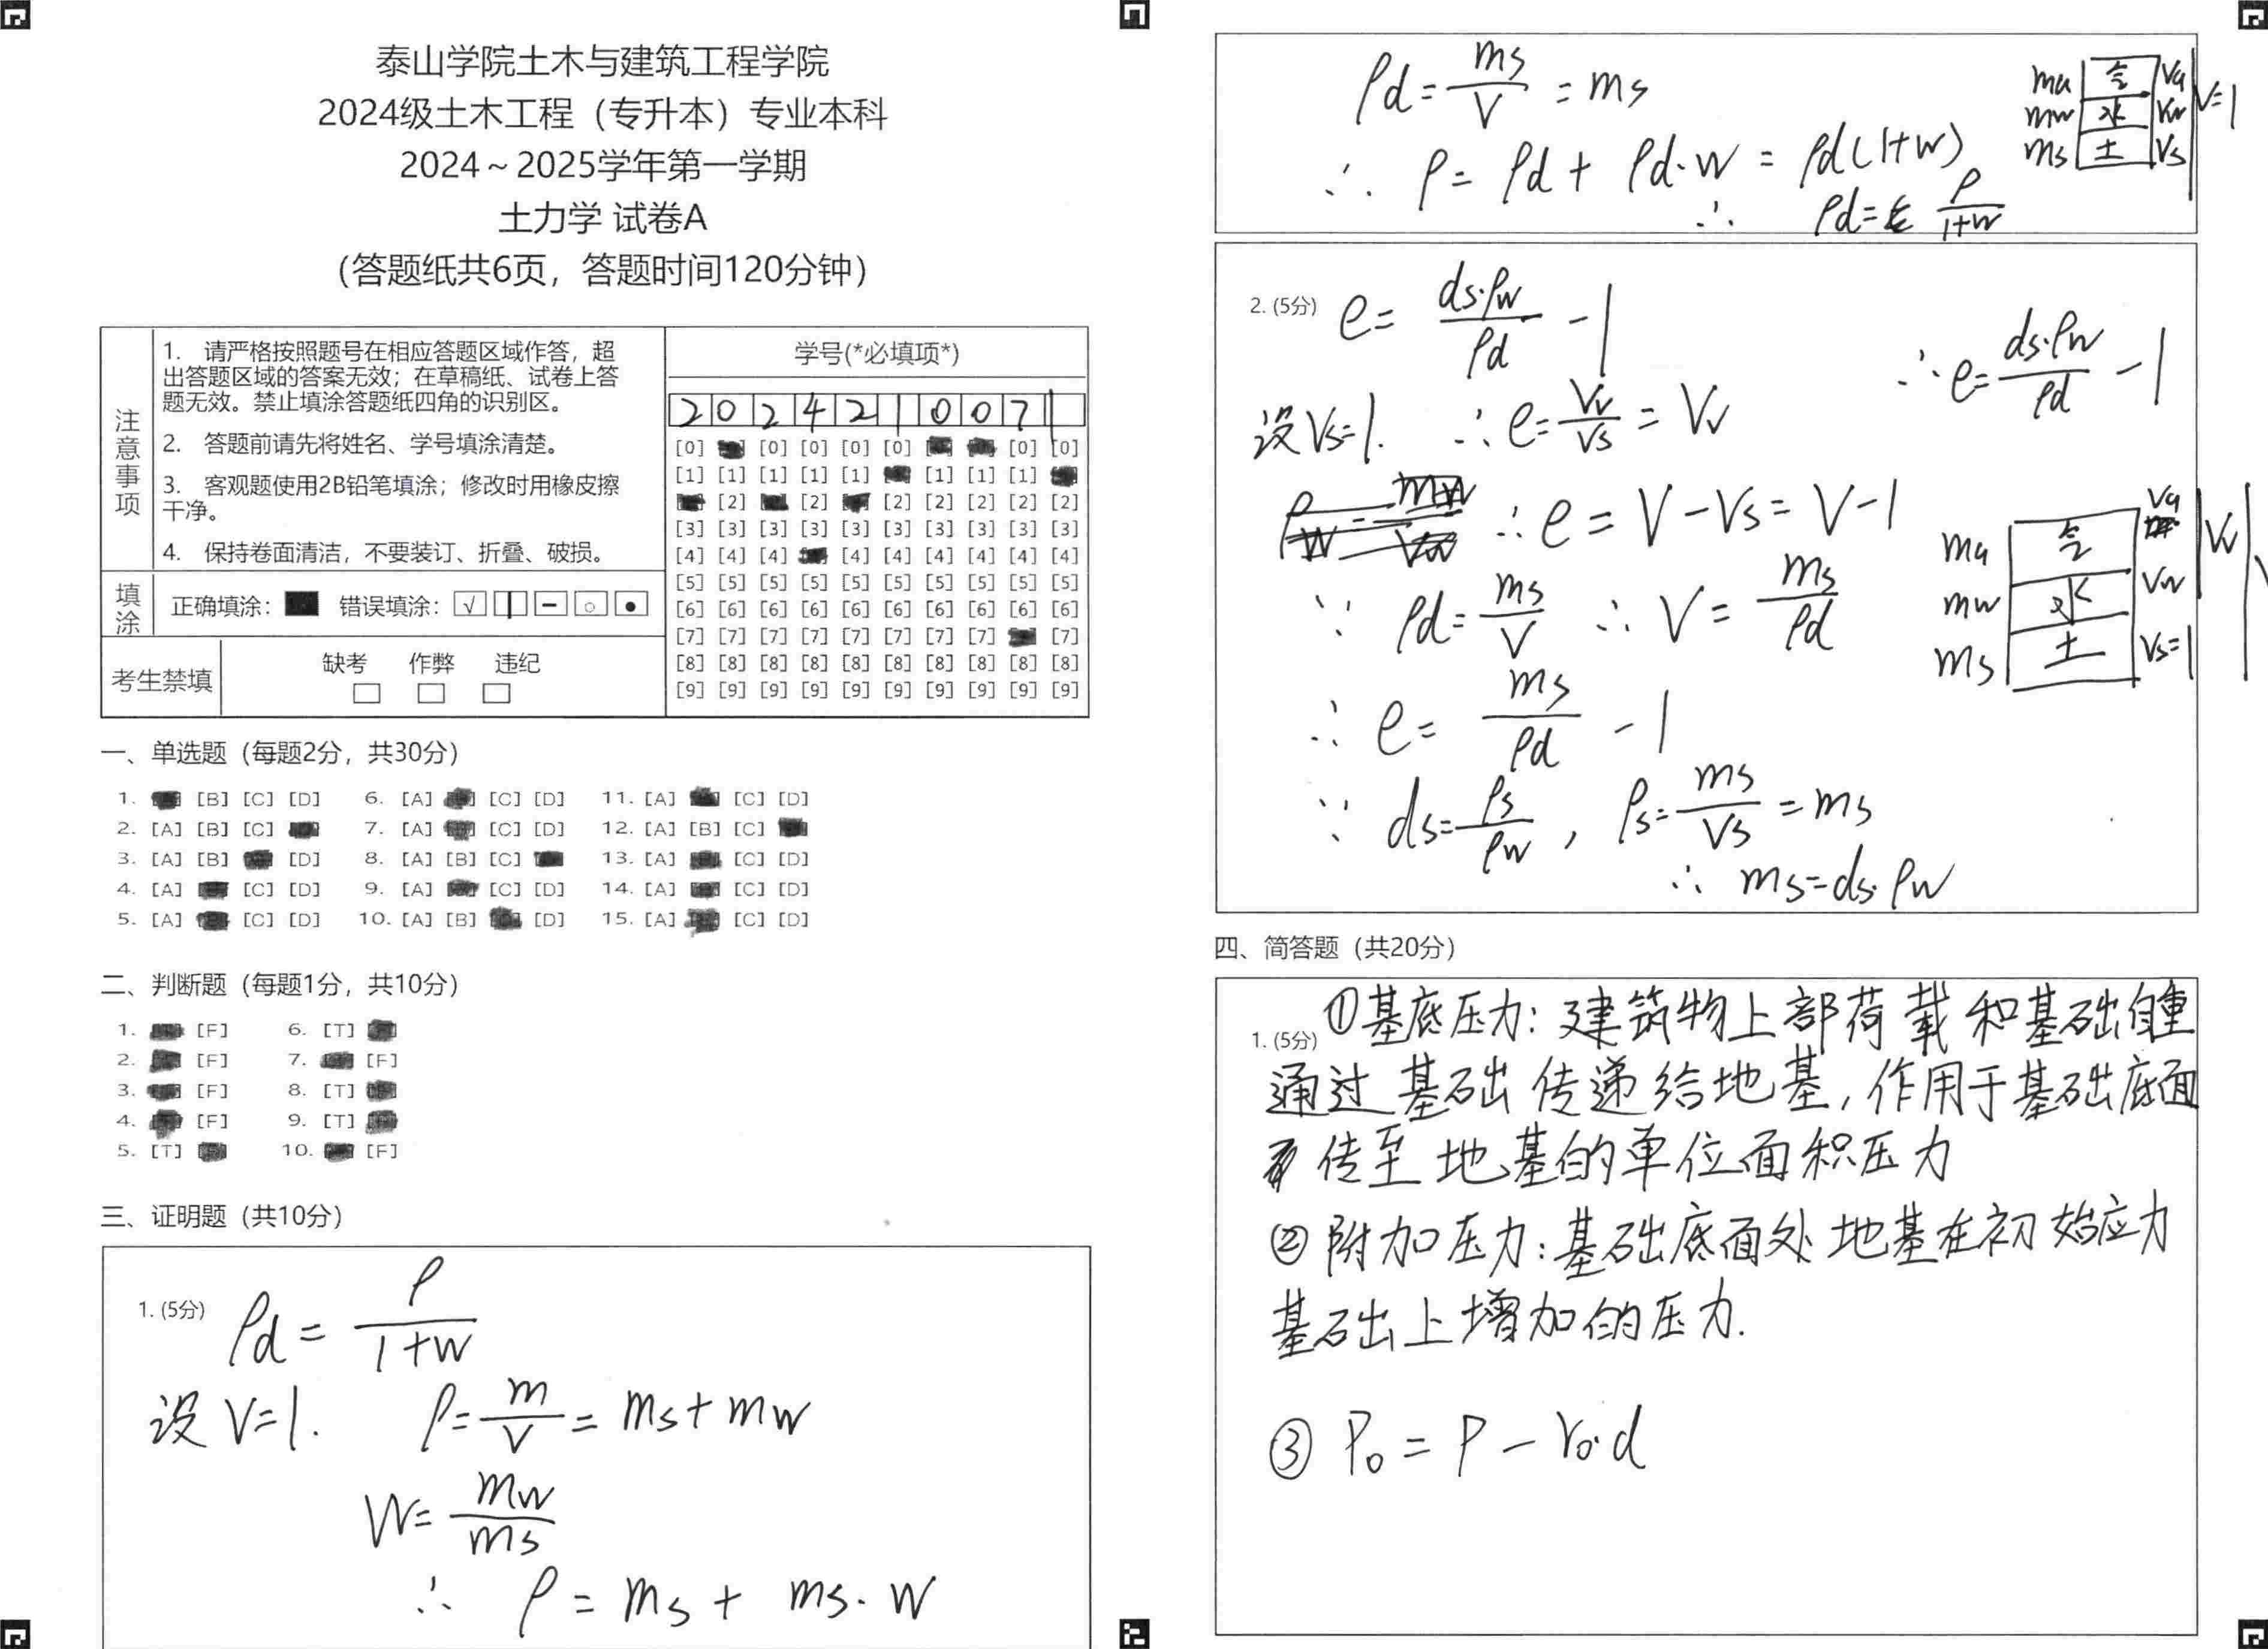 泰山学院土木与建筑工程学院
2024级土木工程（专升本）专业本科
2024～2025学年第一学期
土力学 试卷A
（答题纸共6页，答题时间120分钟）
注意事项
1. 请严格按照题号在相应答题区域作答，超
出答题区域的答案无效；在草稿纸、试卷上答
题无效。禁止填涂答题纸四角的识别区。
2. 答题前请先将姓名、学号填涂清楚。
3. 客观题使用2B铅笔填涂；修改时用橡皮擦
干净。
4. 保持卷面清洁，不要装订、折叠、破损。
填涂
正确填涂： 错误填涂： √
考生禁填
缺考 作弊 违纪
学号(*必填项*)
2 0 2 4 2 1 0 0 7 1
[0] [0] [0] [0] [0] [0] [0]
[1] [1] [1] [1] [1] [1] [1] [1]
[2] [2] [2] [2] [2] [2] [2]
[3] [3] [3] [3] [3] [3] [3] [3] [3] [3]
[4] [4] [4] [4] [4] [4] [4] [4] [4]
[5] [5] [5] [5] [5] [5] [5] [5] [5] [5]
[6] [6] [6] [6] [6] [6] [6] [6] [6] [6]
[7] [7] [7] [7] [7] [7] [7] [7] [7]
[8] [8] [8] [8] [8] [8] [8] [8] [8] [8]
[9] [9] [9] [9] [9] [9] [9] [9] [9] [9]
一、单选题（每题2分，共30分）
1. [B] [C] [D] 6. [A] [C] [D] 11. [A] [C] [D]
2. [A] [B] [C] 7. [A] [C] [D] 12. [A] [B] [C]
3. [A] [B] [D] 8. [A] [B] [C] 13. [A] [C] [D]
4. [A] [C] [D] 9. [A] [C] [D] 14. [A] [C] [D]
5. [A] [C] [D] 10. [A] [B] [D] 15. [A] [C] [D]
二、判断题（每题1分，共10分）
1. [F] 6. [T]
2. [F] 7. [F]
3. [F] 8. [T]
4. [F] 9. [T]
5. [T] 10. [F]
三、证明题（共10分）
1. (5分) ρd = ρ/(1+w)
设V=1. ρ = m/V = ms + mw
W = mw/ms
∴ ρ = ms + ms·w
ρd = ms/V = ms
∴ ρ = ρd + ρd·w = ρd(1+w)
∴ ρd = ρ/(1+w)
ma 气 Va
mw 水 Vw V=1
ms 土 Vs
2. (5分) e = ds·ρw/ρd − 1
∴ e = ds·ρw/ρd − 1
设Vs=1. ∴ e = Vv/Vs = Vv
∴ e = V − Vs = V − 1
∵ ρd = ms/V ∴ V = ms/ρd
∴ e = ms/ρd − 1
∵ ds = ρs/ρw , ρs = ms/Vs = ms
∴ ms = ds·ρw
ma 气 Va Vv
mw 水 Vw
ms 土 Vs=1
四、简答题（共20分）
1. (5分) ①基底压力：建筑物上部荷载和基础自重
通过基础传递给地基，作用于基础底面
传至地基的单位面积压力
②附加压力：基础底面处地基在初始应力
基础上增加的压力.
③ P₀ = P − γ₀·d